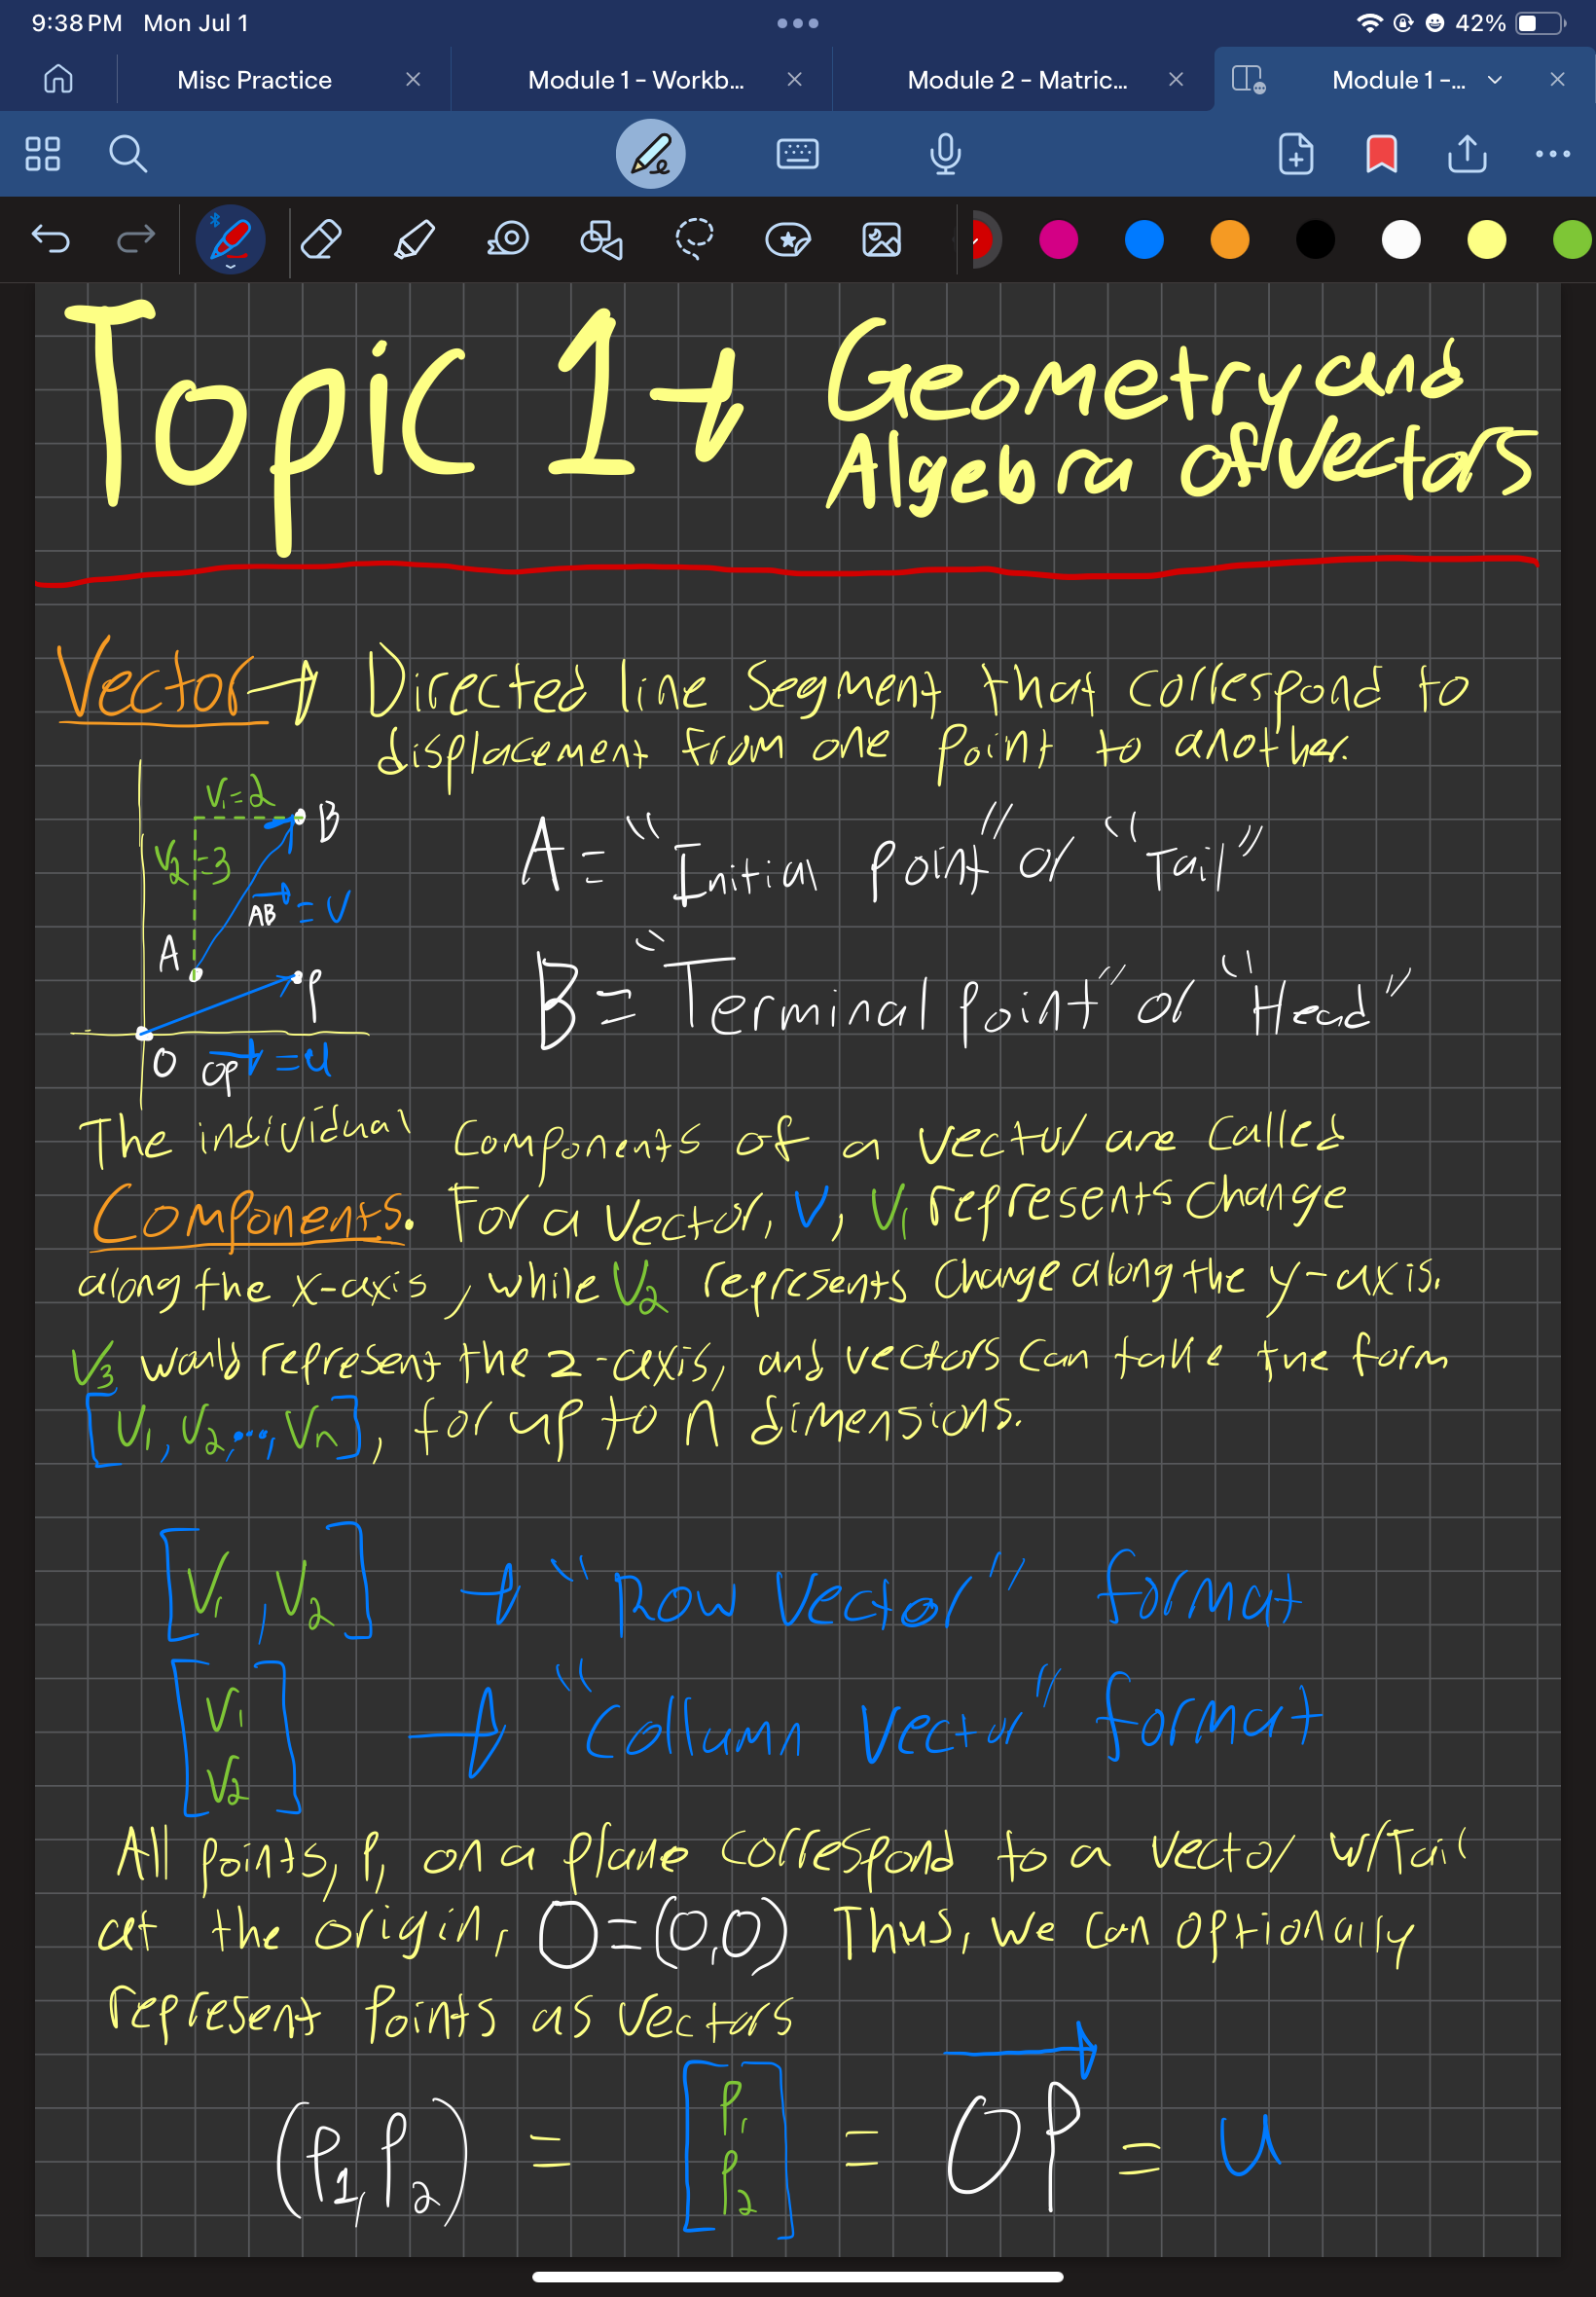 9:38 PM Mon Jul 1
42%
Misc Practice
Module 1 - Workb...
Module 2 - Matric...
Module 1 -...
Topic 1 → Geometry and
Algebra of Vectors
Vector → Directed line segment that correspond to
displacement from one point to another.
V₁=2
B
V₂=3
AB = V
A
P
O
OP = u
A = "Initial Point" or "Tail"
B = "Terminal Point" or "Head"
The individual components of a vector are called
Components. For a vector, V, V₁ represents change
along the x-axis, while V₂ represents change along the y-axis.
V₃ would represent the z-axis, and vectors can take the form
[V₁, V₂, ..., Vn], for up to n dimensions.
[V₁, V₂] → "Row Vector" format
[V₁
V₂] → "Collumn Vector" format
All points, P, on a plane correspond to a vector w/Tail
at the origin, O=(0,0) Thus, we can optionally
represent points as vectors
(P₁, P₂) = [P₁
P₂] = OP = u